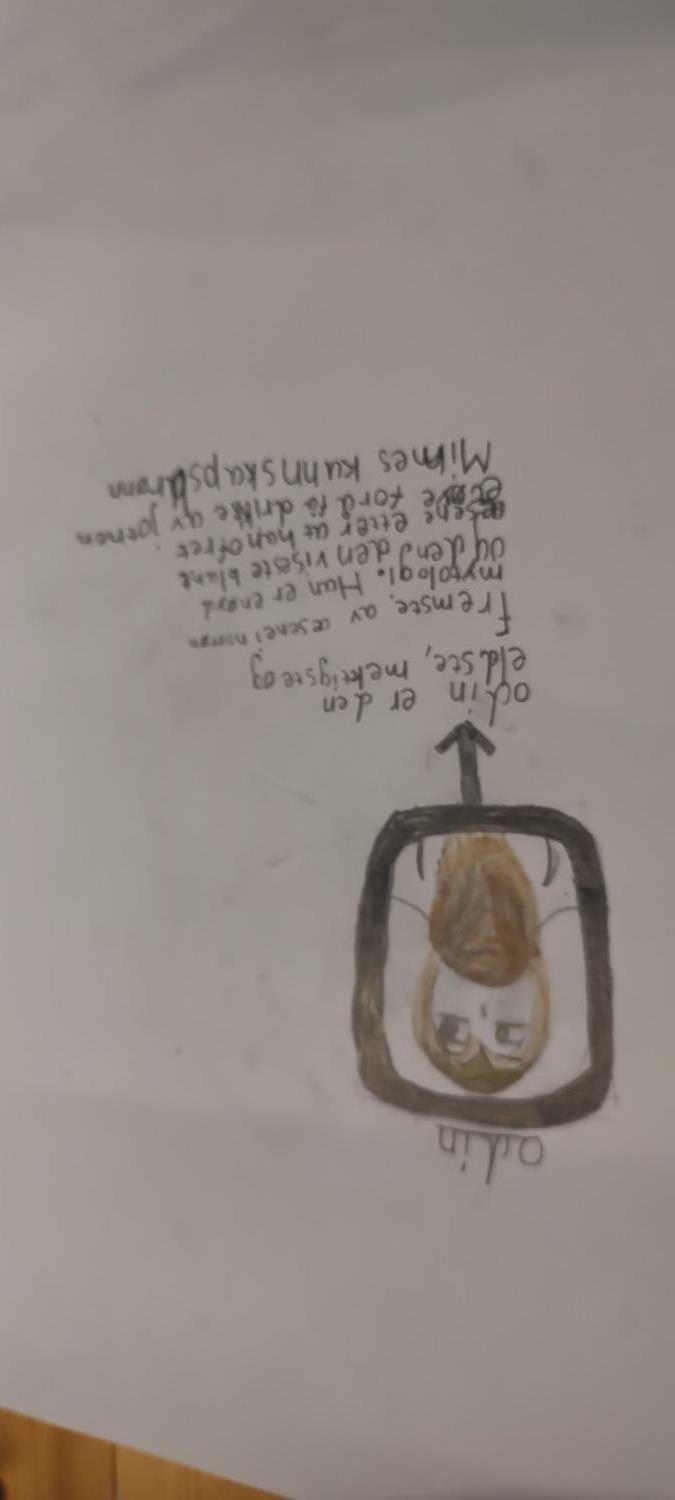 odin
odin er den
eldste, mektigste og
fremste, av æsene i norrøn
mytologi. Han er enøyd
og den den viseste blant
æsene etter at han ofret
for å få drikke av jotnen
Mimes kunnskapsbrønn